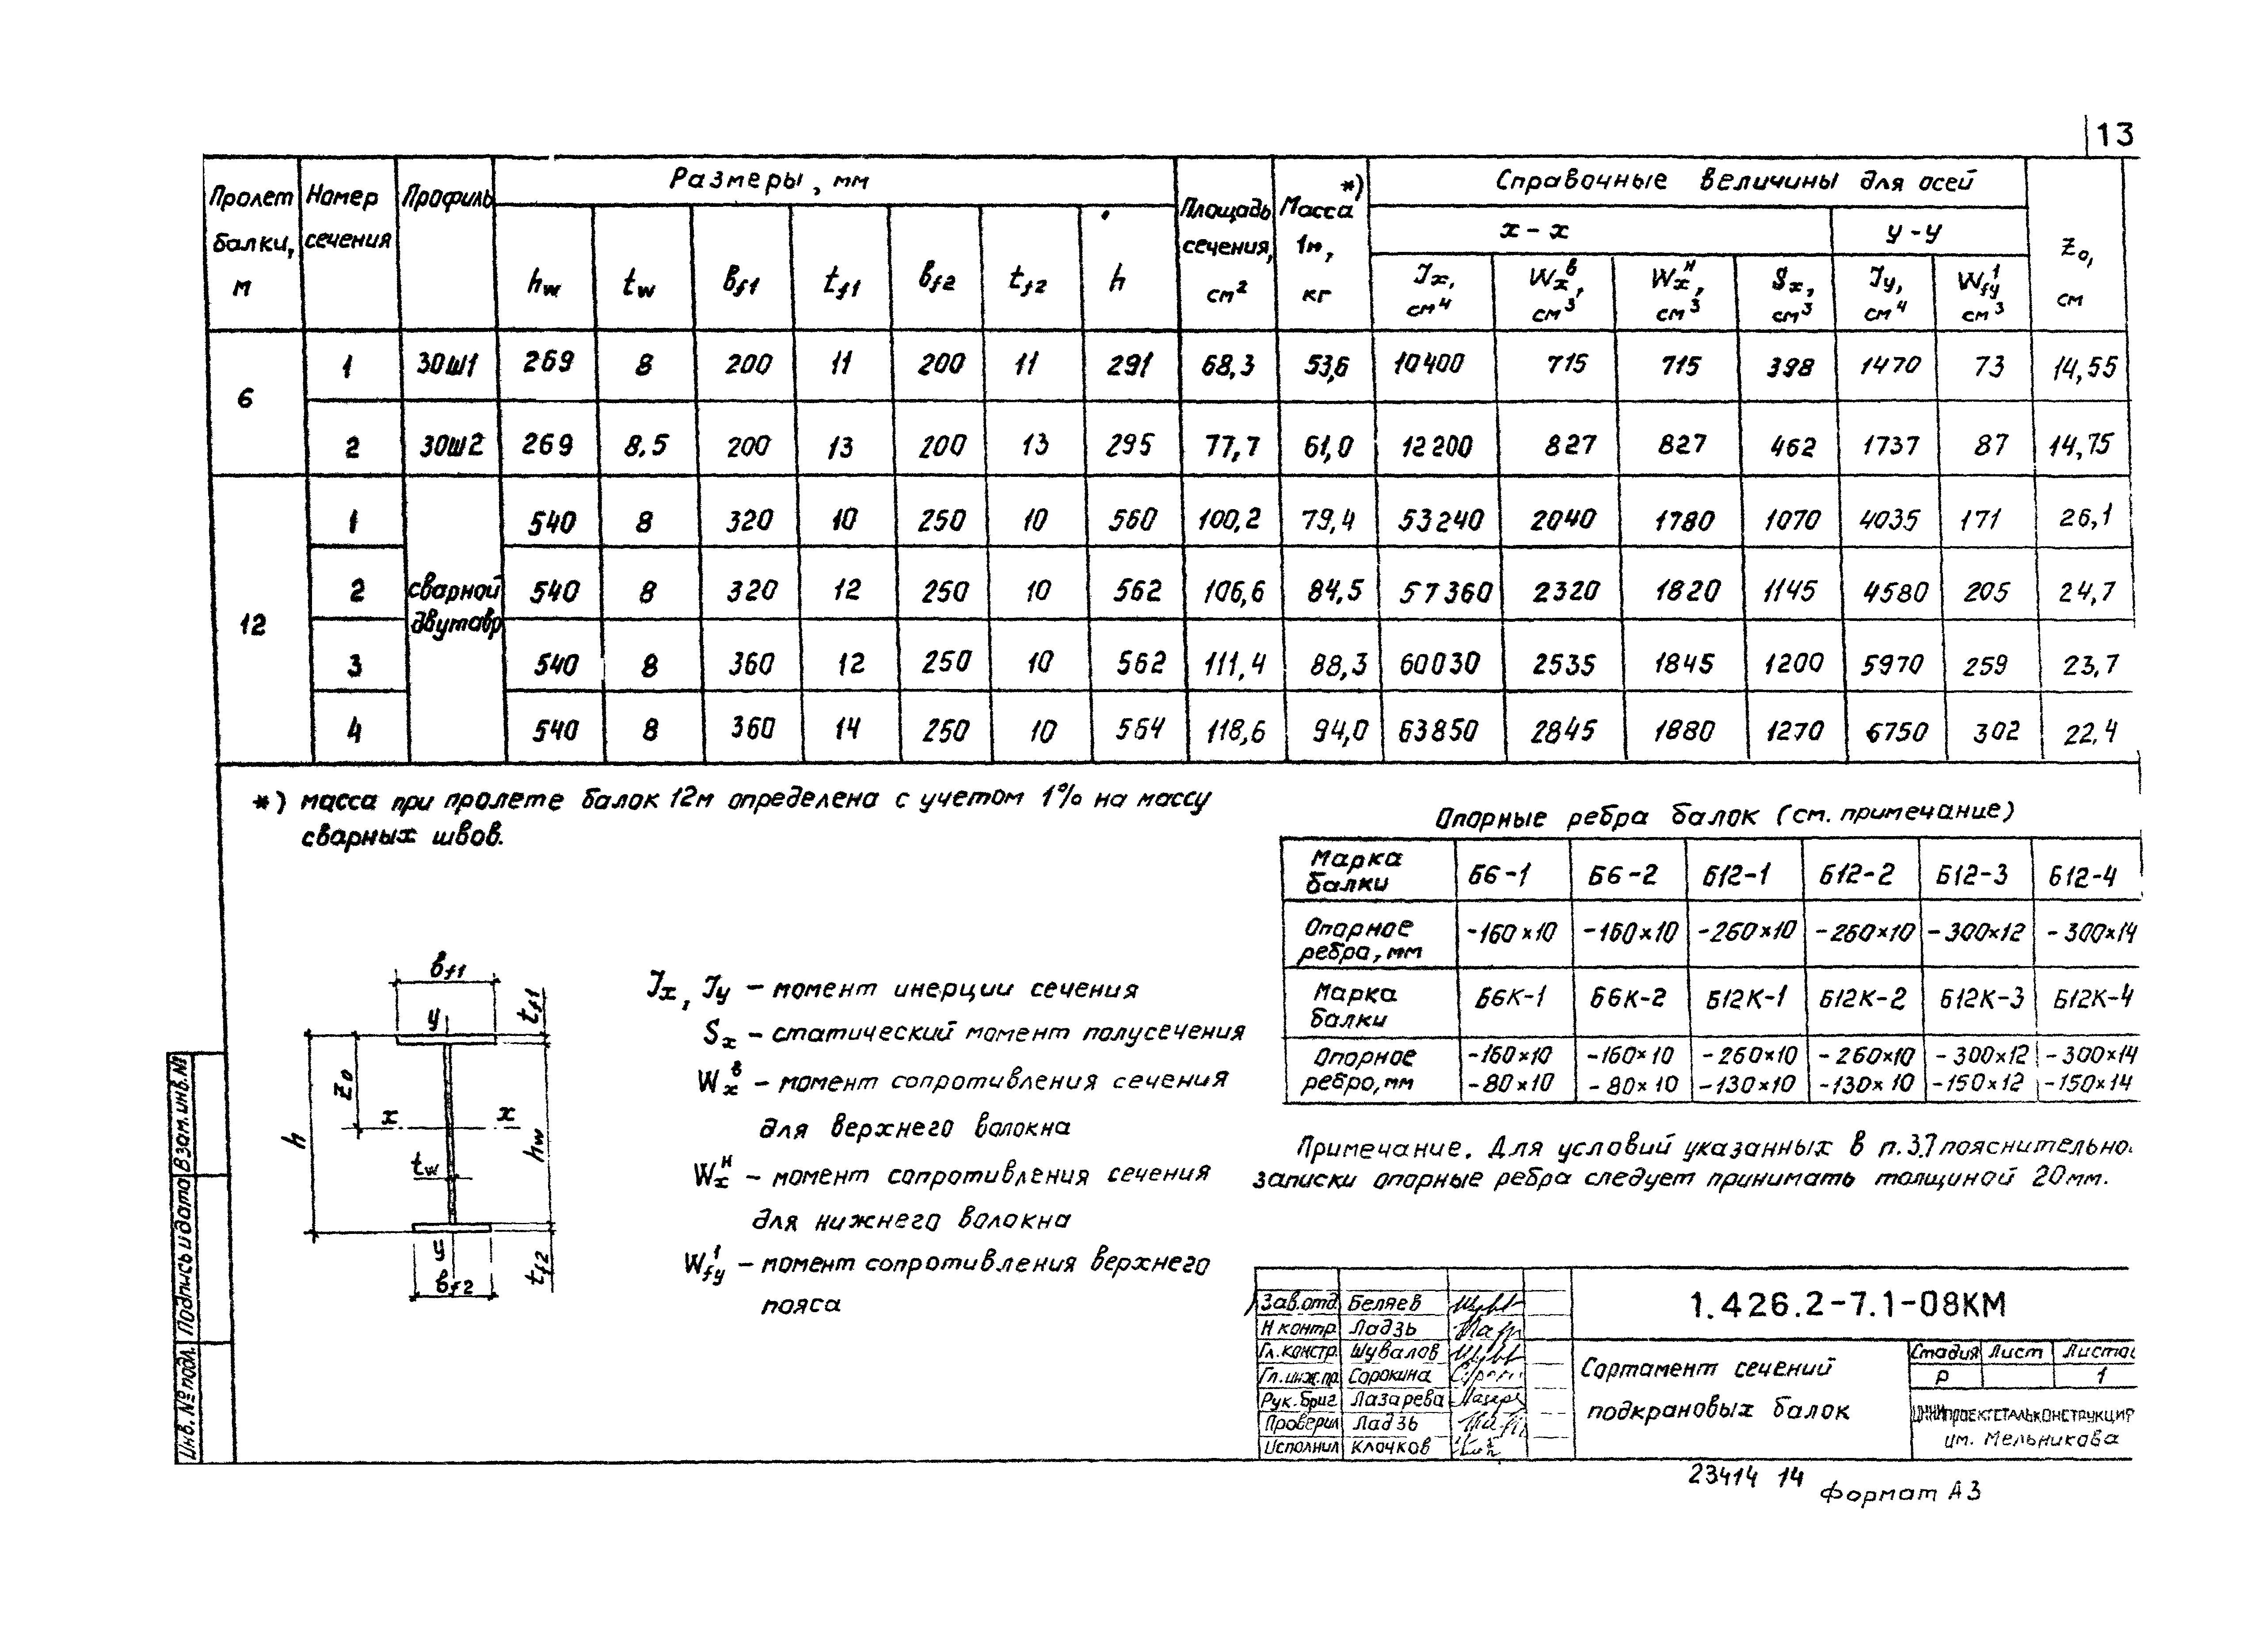 13
Пролет балки, м | Номер сечения | Профиль | Размеры, мм | Площадь сечения, см² | Масса*) 1м, кг | Справочные величины для осей | z₀, см
х-х | у-у
hw | tw | bf1 | tf1 | bf2 | tf2 | h | Jx, см⁴ | Wxᵇ, см³ | Wxᴴ, см³ | Sx, см³ | Jy, см⁴ | Wfy¹ см³
6 | 1 | 30Ш1 | 269 | 8 | 200 | 11 | 200 | 11 | 291 | 68,3 | 53,6 | 10400 | 715 | 715 | 398 | 1470 | 73 | 14,55
2 | 30Ш2 | 269 | 8.5 | 200 | 13 | 200 | 13 | 295 | 77,7 | 61,0 | 12200 | 827 | 827 | 462 | 1737 | 87 | 14,75
12 | сварной двутавр | 1 | 540 | 8 | 320 | 10 | 250 | 10 | 560 | 100,2 | 79,4 | 53240 | 2040 | 1780 | 1070 | 4035 | 171 | 26,1
2 | 540 | 8 | 320 | 12 | 250 | 10 | 562 | 106,6 | 84,5 | 57360 | 2320 | 1820 | 1145 | 4580 | 205 | 24,7
3 | 540 | 8 | 360 | 12 | 250 | 10 | 562 | 111,4 | 88,3 | 60030 | 2535 | 1845 | 1200 | 5970 | 259 | 23,7
4 | 540 | 8 | 360 | 14 | 250 | 10 | 564 | 118,6 | 94,0 | 63850 | 2845 | 1880 | 1270 | 6750 | 302 | 22,4
*) масса при пролете балок 12м определена с учетом 1% на массу
сварных швов.
Опорные ребра балок (см. примечание)
Марка балки | Б6-1 | Б6-2 | Б12-1 | Б12-2 | Б12-3 | Б12-4
Опорное ребра, мм | -160×10 | -160×10 | -260×10 | -260×10 | -300×12 | -300×14
Марка балки | Б6К-1 | Б6К-2 | Б12К-1 | Б12К-2 | Б12К-3 | Б12К-4
Опорное | -160×10 | -160×10 | -260×10 | -260×10 | -300×12 | -300×14
ребро, мм | -80×10 | -80×10 | -130×10 | -130×10 | -150×12 | -150×14
Примечание. Для условий указанных в п.3.7 пояснительно
записки опорные ребра следует принимать толщиной 20мм.
bf1
tf1
y
z₀
x x
h
tw
hw
y
bf2
tf2
Jx, Jy – момент инерции сечения
Sx – статический момент полусечения
Wxᵇ – момент сопротивления сечения
для верхнего волокна
Wxᴴ – момент сопротивления сечения
для нижнего волокна
Wfy¹ – момент сопротивления верхнего
пояса
Инв. № подл. | Подпись и дата | Взам. инв. №
Зав.отд | Беляев
Н контр. | Ладзь
Гл.констр. | Шувалов
Гл.инж.пр. | Сорокина
Рук.бриг | Лазарева
Проверил | Ладзь
Исполнил | Клочков
1.426.2-7.1-08КМ
Сортамент сечений
подкрановых балок
Стадия | Лист | Листо
Р | 1
ЦНИИПРОЕКТСТАЛЬКОНСТРУКЦИЯ
им. Мельникова
23414 14
Формат А3